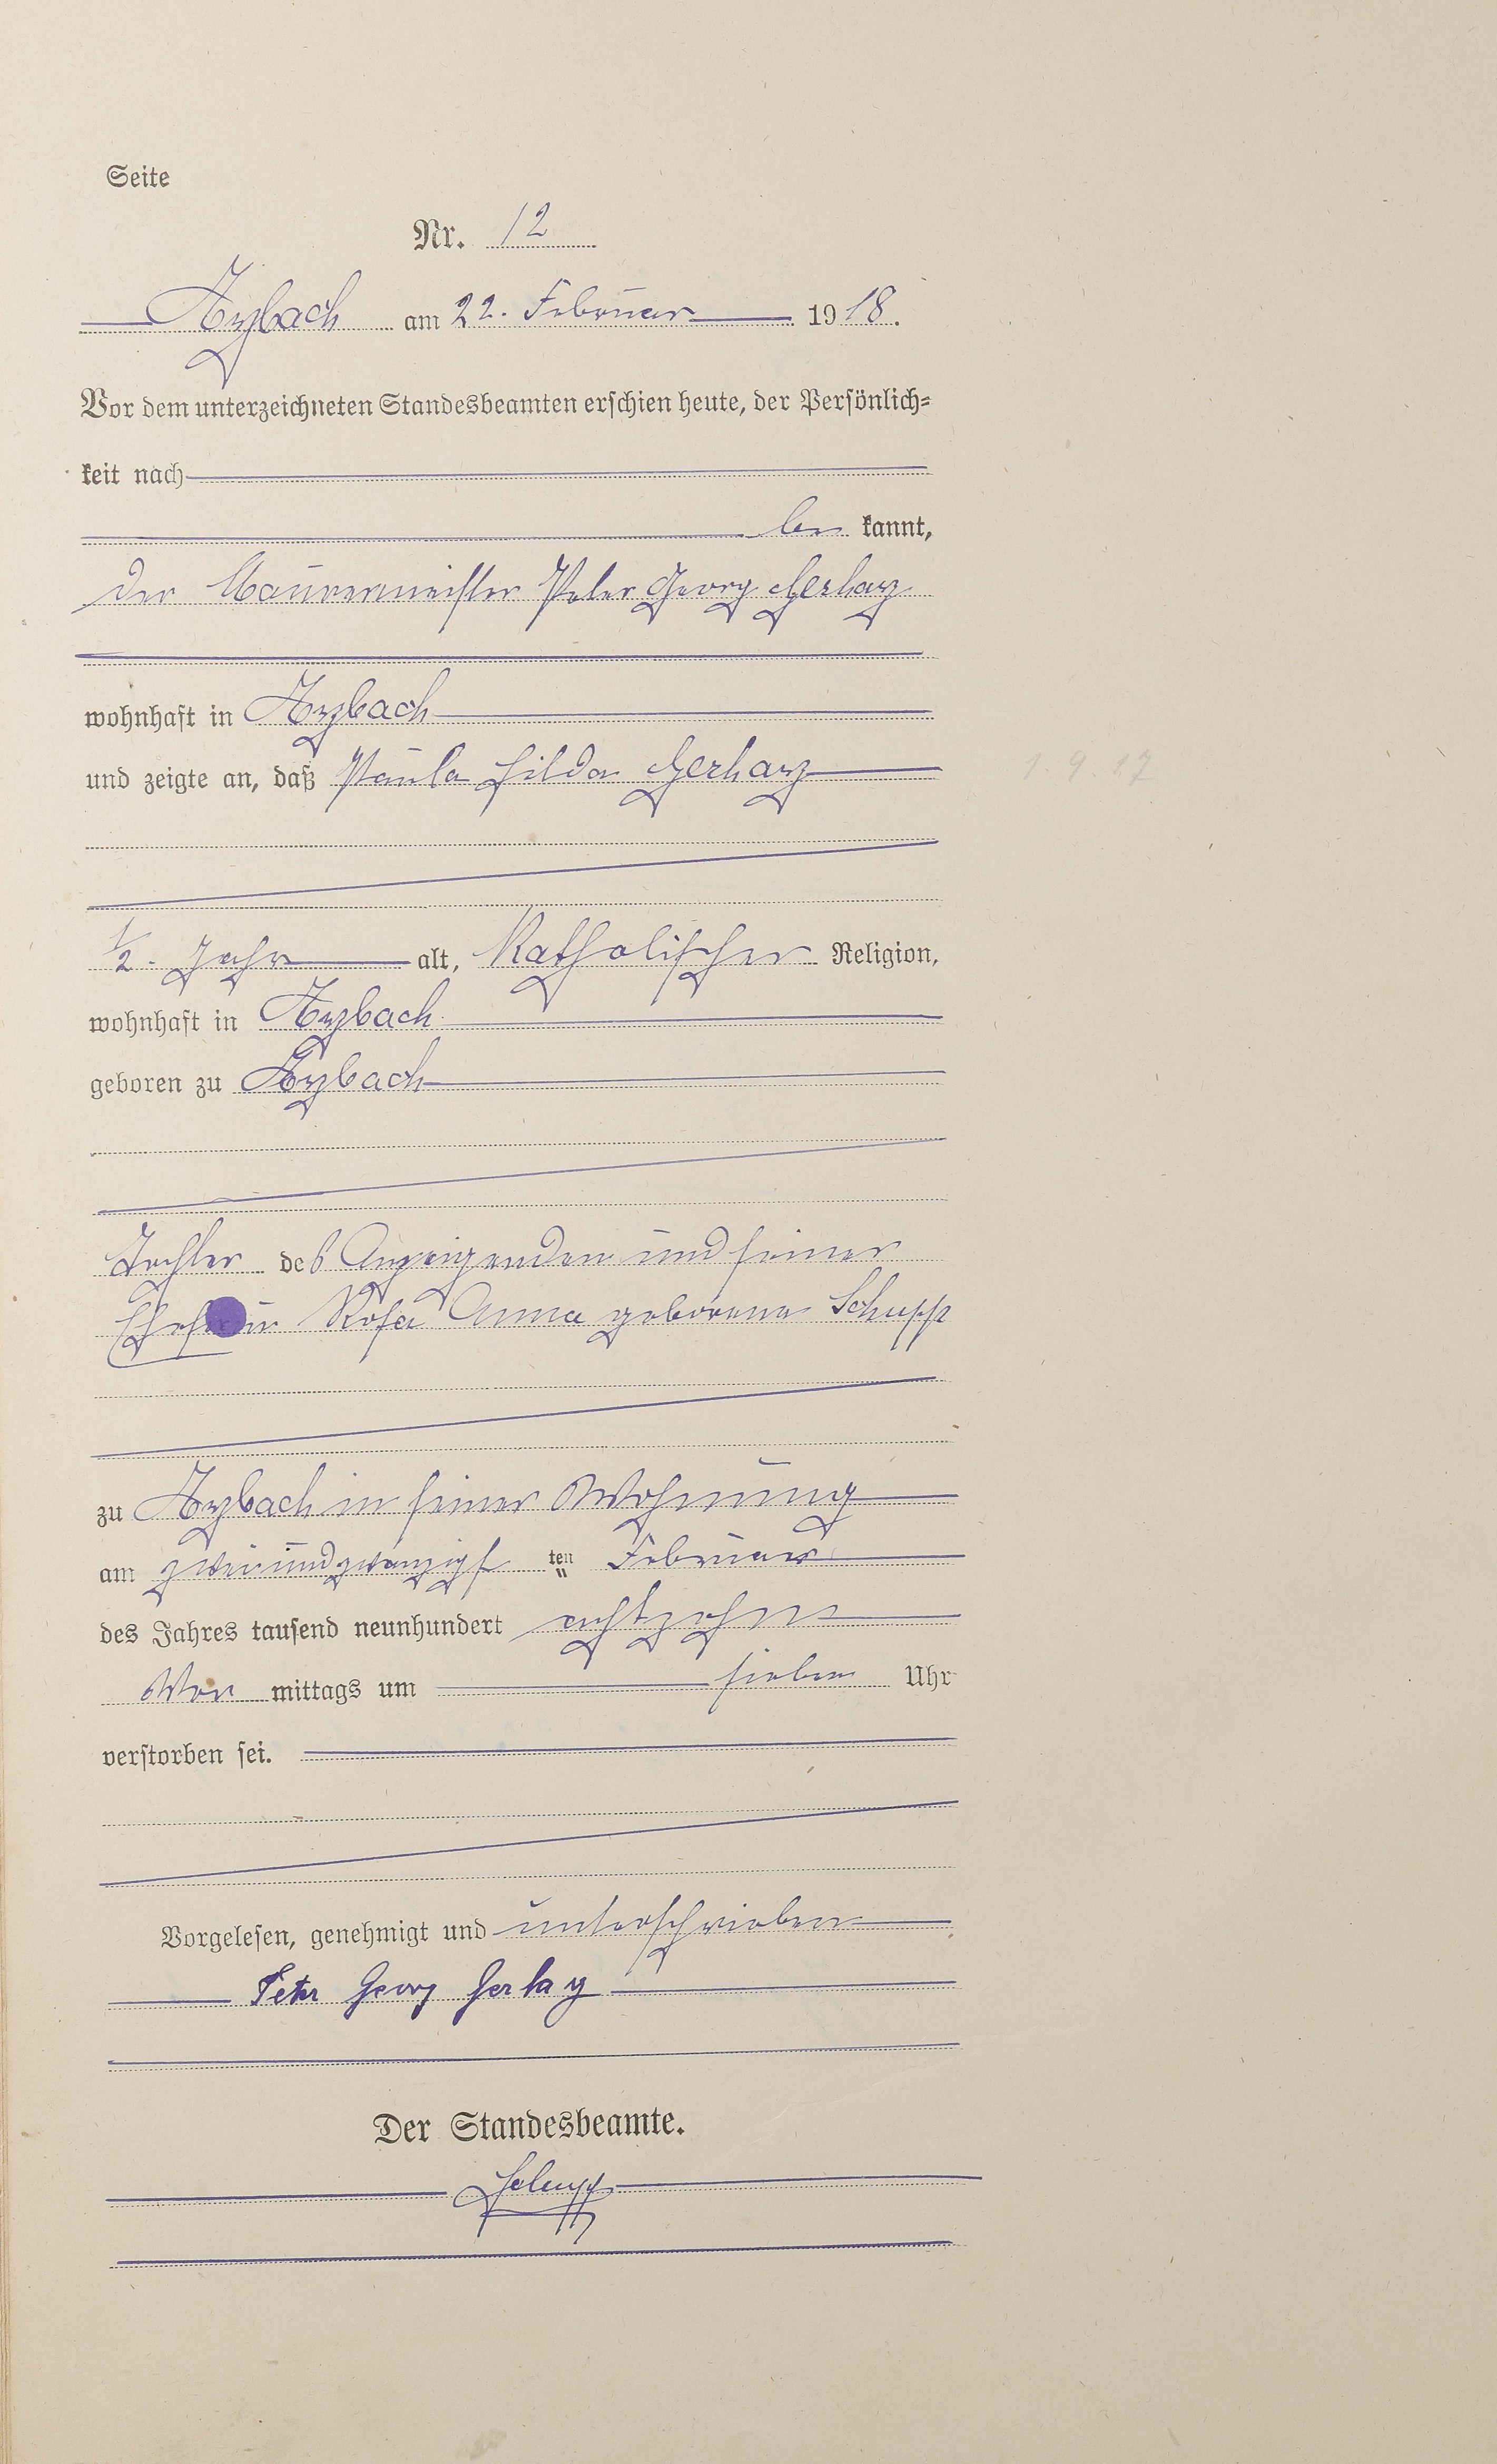 Seite
Nr. 12
Arzbach am 22. Februar 1918.
Vor dem unterzeichneten Standesbeamten erschien heute, der Persönlich-
keit nach
be kannt,
der Maurermeister Peter Georg Gerharz
wohnhaft in Arzbach
und zeigte an, daß Paula Hilda Gerharz
1.9.17
1/2. Jahr alt, Katholischer Religion,
wohnhaft in Arzbach
geboren zu Arzbach
Tochter des Anzeigenden und seiner
Rosa Anna geborene Schupp
zu Arzbach in seiner Wohnung
am zweiundzwanzigs ten Februar
des Jahres tausend neunhundert achtzehn
Vor mittags um sieben Uhr
verstorben sei.
Vorgelesen, genehmigt und unterschrieben
Peter Georg Gerharz
Der Standesbeamte.
Schupp